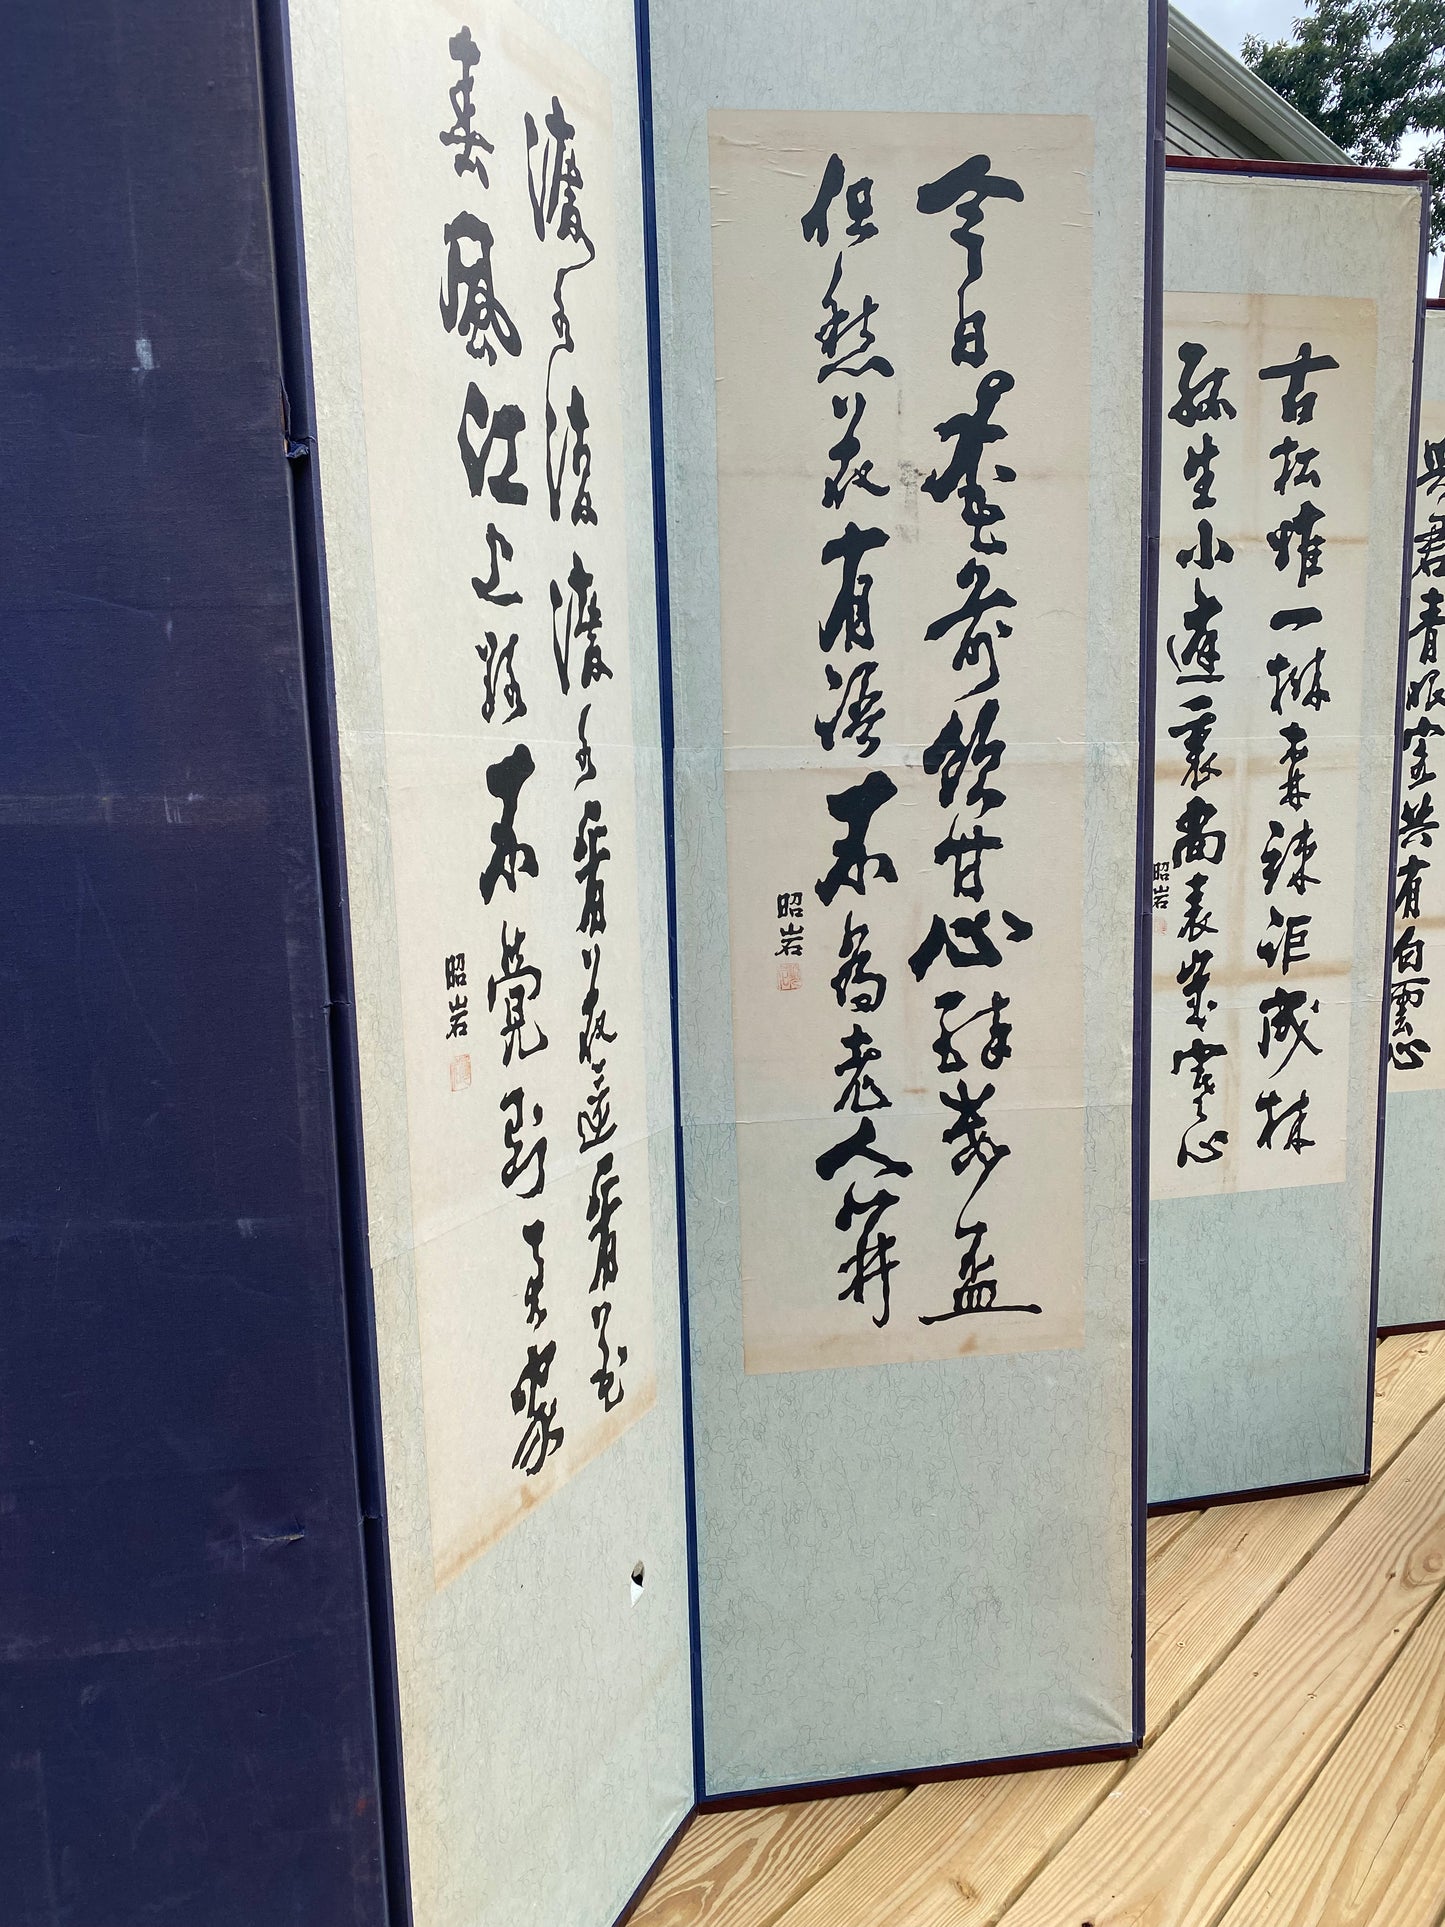 與君青眼客共有白雲心
古松唯一樹森竦詎成林
孤生小庭裏尚表歲寒心
昭岩
今日花前飲甘心醉數盃
但愁花有語不為老人開
昭岩
渡水復渡水看花還看花
春風江上路不覺到君家
昭岩